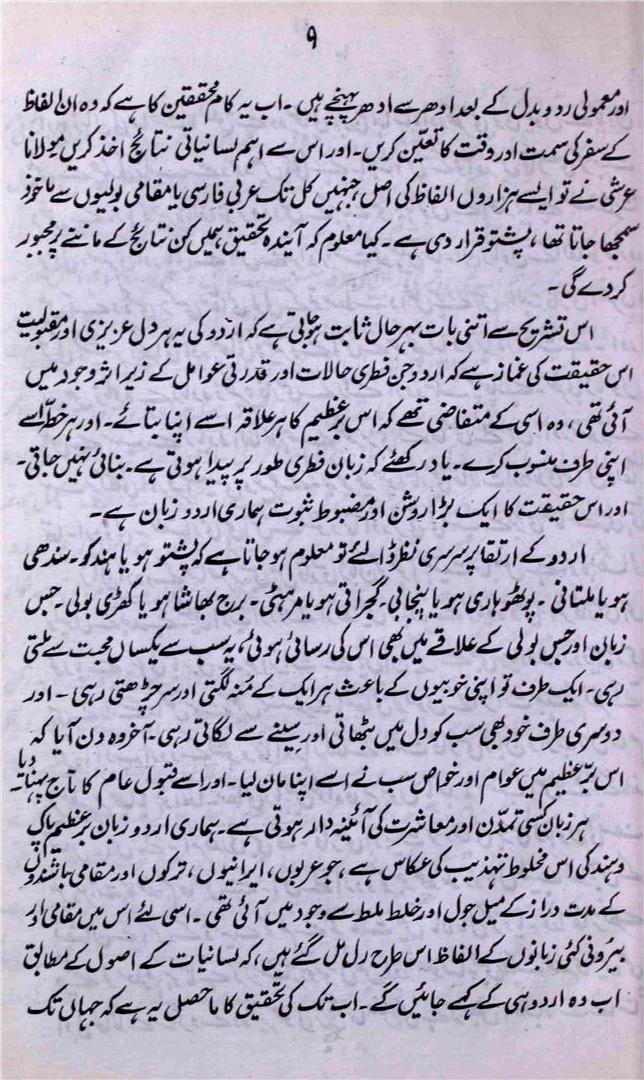 ۹
اور معمولی رد و بدل کے بعد ادھر سے ادھر پہنچے ہیں۔ اب یہ کام محققین کا ہے کہ وہ ان الفاظ
کے سفر کی سمت اور وقت کا تعیّن کریں۔ اور اس سے اہم لسانیاتی نتائج اخذ کریں مولانا
عرشی نے تو ایسے ہزاروں الفاظ کی اصل، جنہیں کل تک عربی فارسی یا مقامی بولیوں سے ماخوذ
سمجھا جاتا تھا، پشتو قرار دی ہے۔ کیا معلوم کہ آیندہ تحقیق ہمیں کن نتائج کے ماننے پر مجبور
کر دے گی۔
اس تشریح سے اتنی بات بہر حال ثابت ہو جاتی ہے کہ اردو کی یہ ہر دل عزیزی اور مقبولیت
اس حقیقت کی غماز ہے کہ اردو جن فطری حالات اور قدرتی عوامل کے زیر اثر وجود میں
آئی تھی، وہ اسی کے متقاضی تھے کہ اس برّعظیم کا ہر علاقہ اسے اپنا بتائے۔ اور ہر خطّہ اسے
اپنی طرف منسوب کرے۔ یاد رکھئے کہ زبان فطری طور پر پیدا ہوتی ہے۔ بنائی نہیں جاتی۔
اور اس حقیقت کا ایک بڑا روشن اور مضبوط ثبوت ہماری اردو زبان ہے۔
اردو کے ارتقا پر سرسری نظر ڈالئے تو معلوم ہو جاتا ہے کہ پشتو ہو یا ہندکو۔ سندھی
ہو یا ملتانی۔ پوٹھوہاری ہو یا پنجابی۔ گجراتی ہو یا مرہٹی۔ برج بھاشا ہو یا کھڑی بولی۔ جس
زبان اور جس بولی کے علاقے میں بھی اس کی رسائی ہوئی، یہ سب سے یکساں محبت سے ملتی
رہی۔ ایک طرف تو اپنی خوبیوں کے باعث ہر ایک کے مُنہ لگتی اور سر چڑھتی رہی۔ اور
دوسری طرف خود بھی سب کو دل میں بٹھاتی اور سینے سے لگاتی رہی۔ آخر وہ دن آیا کہ
اس برّعظیم میں عوام اور خواص سب نے اسے اپنا مان لیا۔ اور اسے قبول عام کا تاج پہنا دیا۔
ہر زبان کسی تمدّن اور معاشرت کی آئینہ دار ہوتی ہے۔ ہماری اردو زبان برّعظیم پاک
و ہند کی اس مخلوط تہذیب کی عکاس ہے، جو عربوں، ایرانیوں، ترکوں اور مقامی باشندوں
کے مدت دراز کے میل جول اور خلط ملط سے وجود میں آئی تھی۔ اسی لئے اس میں مقامی اور
بیرونی کئی زبانوں کے الفاظ اس طرح رل مل گئے ہیں، کہ لسانیات کے اصول کے مطابق
اب وہ اردو ہی کے کہے جائیں گے۔ اب تک کی تحقیق کا ماحصل یہ ہے کہ جہاں تک